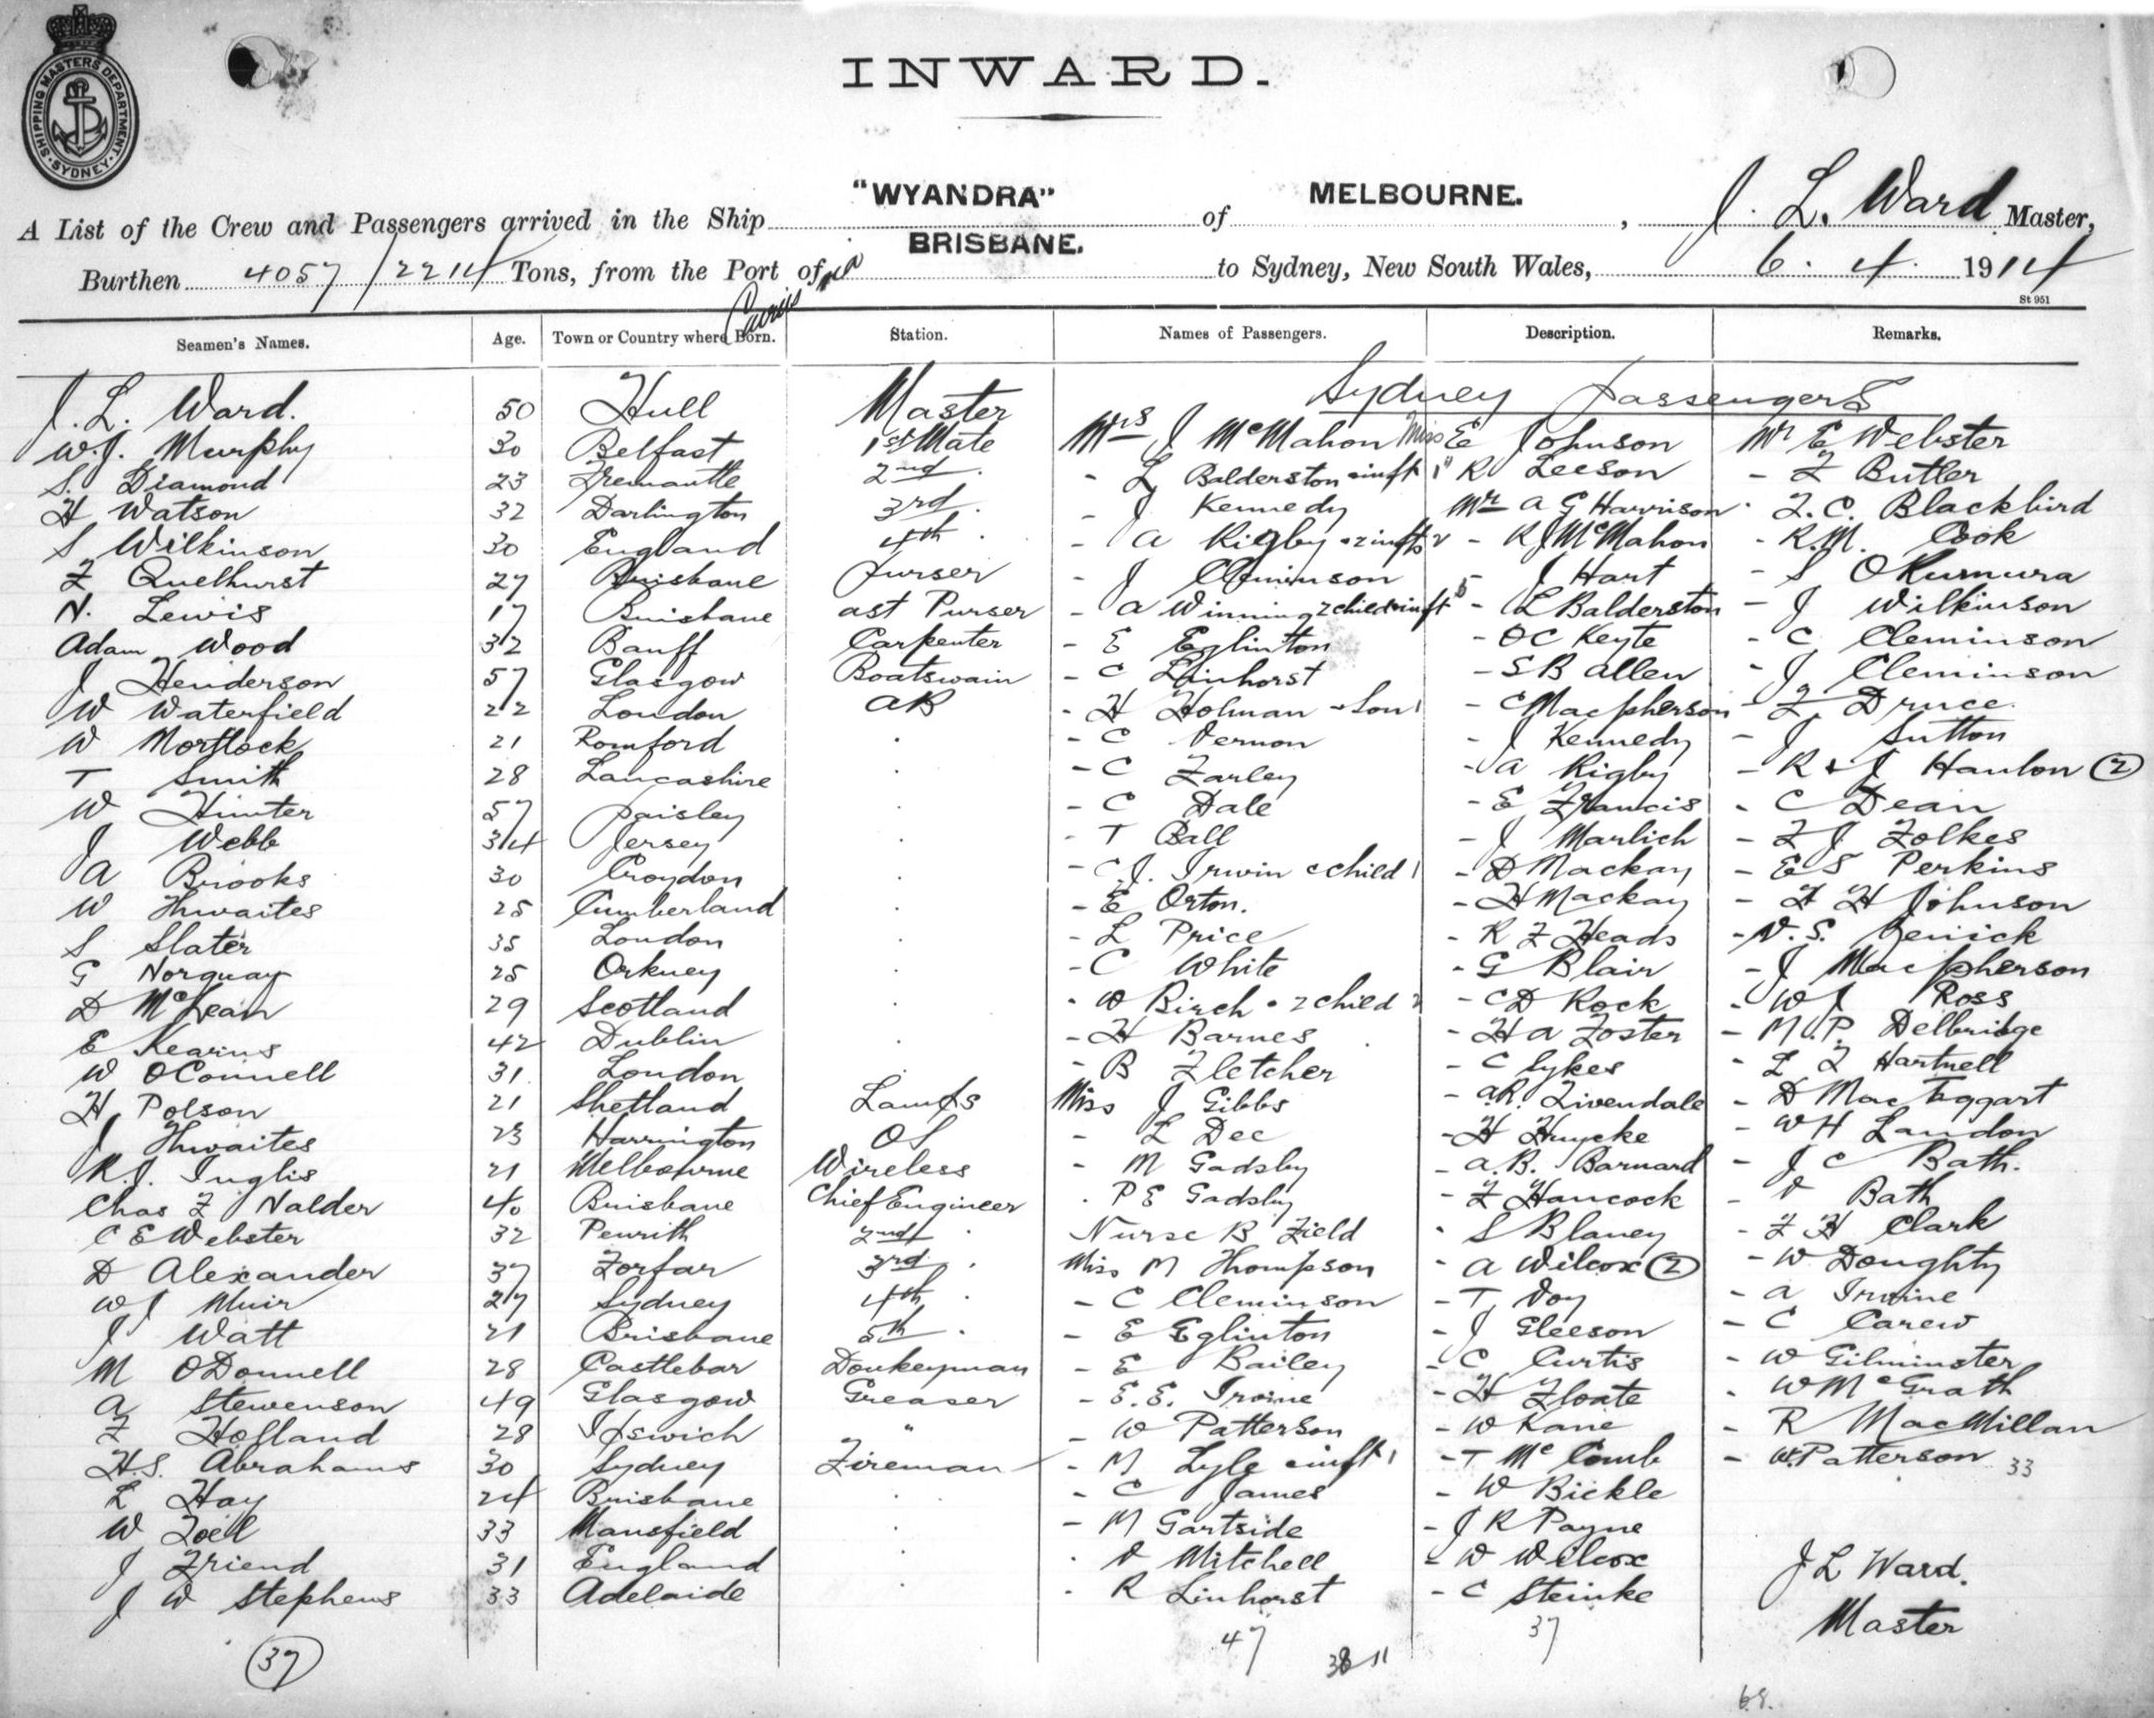 SHIPPING MASTERS DEPARTMENT. SYDNEY.
INWARD.
A List of the Crew and Passengers arrived in the Ship "WYANDRA" of MELBOURNE. , J. L. Ward Master,
Burthen 4057/2214 Tons, from the Port of BRISBANE. to Sydney, New South Wales, 6. 4. 1914
Cairns via
St 951
Seamen's Names. Age. Town or Country where Born. Station. Names of Passengers. Description. Remarks.
Sydney Passengers
J. L. Ward. 50 Hull Master
W.J. Murphy 30 Belfast 1st Mate Mrs J McMahon Miss E Johnson Mr E Webster
S. Diamond 23 Fremantle 2nd - L Balderston & inft 1 " R Leeson - F Butler
H Watson 32 Darlington 3rd - J Kennedy Mr A G Harrison - F. C. Blackbird
S Wilkinson 30 England 4th - A Rigby & 2 infts 2 - R J McMahon - R.M. Cook
F Quelhurst 27 Brisbane Purser - J Cleminson - J Hart - S OKumura
N. Lewis 17 Brisbane ast Purser - A Winning 2 child & inft - L Balderston - J Wilkinson
Adam Wood 32 Banff Carpenter - E Eglinton - O C Keyte - C Cleminson
J Henderson 57 Glasgow Boatswain - C Linhorst - S B Allen - J Cleminson
W Waterfield 22 London AB - H Holman & Son 1 - C Macpherson - F Druce
W Mortlock 21 Romford - C Vernon - J Kennedy - J Sutton
T Smith 28 Lancashire - C Farley - A Rigby - R & J Hanlon (2)
W Hunter 57 Paisley - C Dale - E Francis - C Dean
J Webb 34 Jersey - T Ball - J Marlich - F J Folkes
A Brooks 30 Croydon - C. J. Irwin & child 1 - D Mackay - E S Perkins
W Thwaites 25 Cumberland - E Orton. - H Mackay - H H Johnson
S Slater 35 London - L Price - R F Heads - V. S.
G Norquay 25 Orkney - C White - G Blair - J Macpherson
D McLean 29 Scotland - W Birch & 2 child 2 - C D Rock - W J Ross
E Kearns 42 Dublin - H Barnes - H A Foster - M. P. Delbridge
W OConnell 31 London - B Fletcher - C Sykes - L F Hartnell
H Polson 21 Shetland Lamps Miss J Gibbs - A.R. Livendale - D MacTaggart
J Thwaites 23 Harrington OS - L Dec - H Huycke - W H Landon
R.J. Inglis 21 Melbourne Wireless - M Gadsby - A.B. Barnard - J C Bath.
Chas F Nalder 40 Brisbane Chief Engineer - P E Gadsby - F Hancock - V Bath
C E Webster 32 Penrith 2nd Nurse B Field - S Blaney - F H Clark
D Alexander 37 Forfar 3rd Miss M Thompson - A Wilcox (2) - W Doughty
W J Muir 27 Sydney 4th - C Cleminson - T Voy - A Irvine
J Watt 21 Brisbane 5th - E Eglinton - J Gleeson - C Carew
M ODonnell 28 Castlebar Donkeyman - E Bailey - C Curtis - W Gilminster
A Stewenson 49 Glasgow Greaser - E. E. Irvine - H Floate - W McGrath
F Hofland 28 Ipswich " - W Patterson - W Kane - R MacMillan
H.S. Abrahams 30 Sydney Fireman - M Lyle & inft 1 - T McComb - W. Patterson 33
L Hay 24 Brisbane - C James - W Bickle
W Zoell 33 Mansfield - M Gartside - J R Payne
J Friend 31 England - V Mitchell - W Wilcox J L Ward.
J W Stephens 33 Adelaide - R Linhorst - C Steinke Master
(37) 47 38 11 37
68.